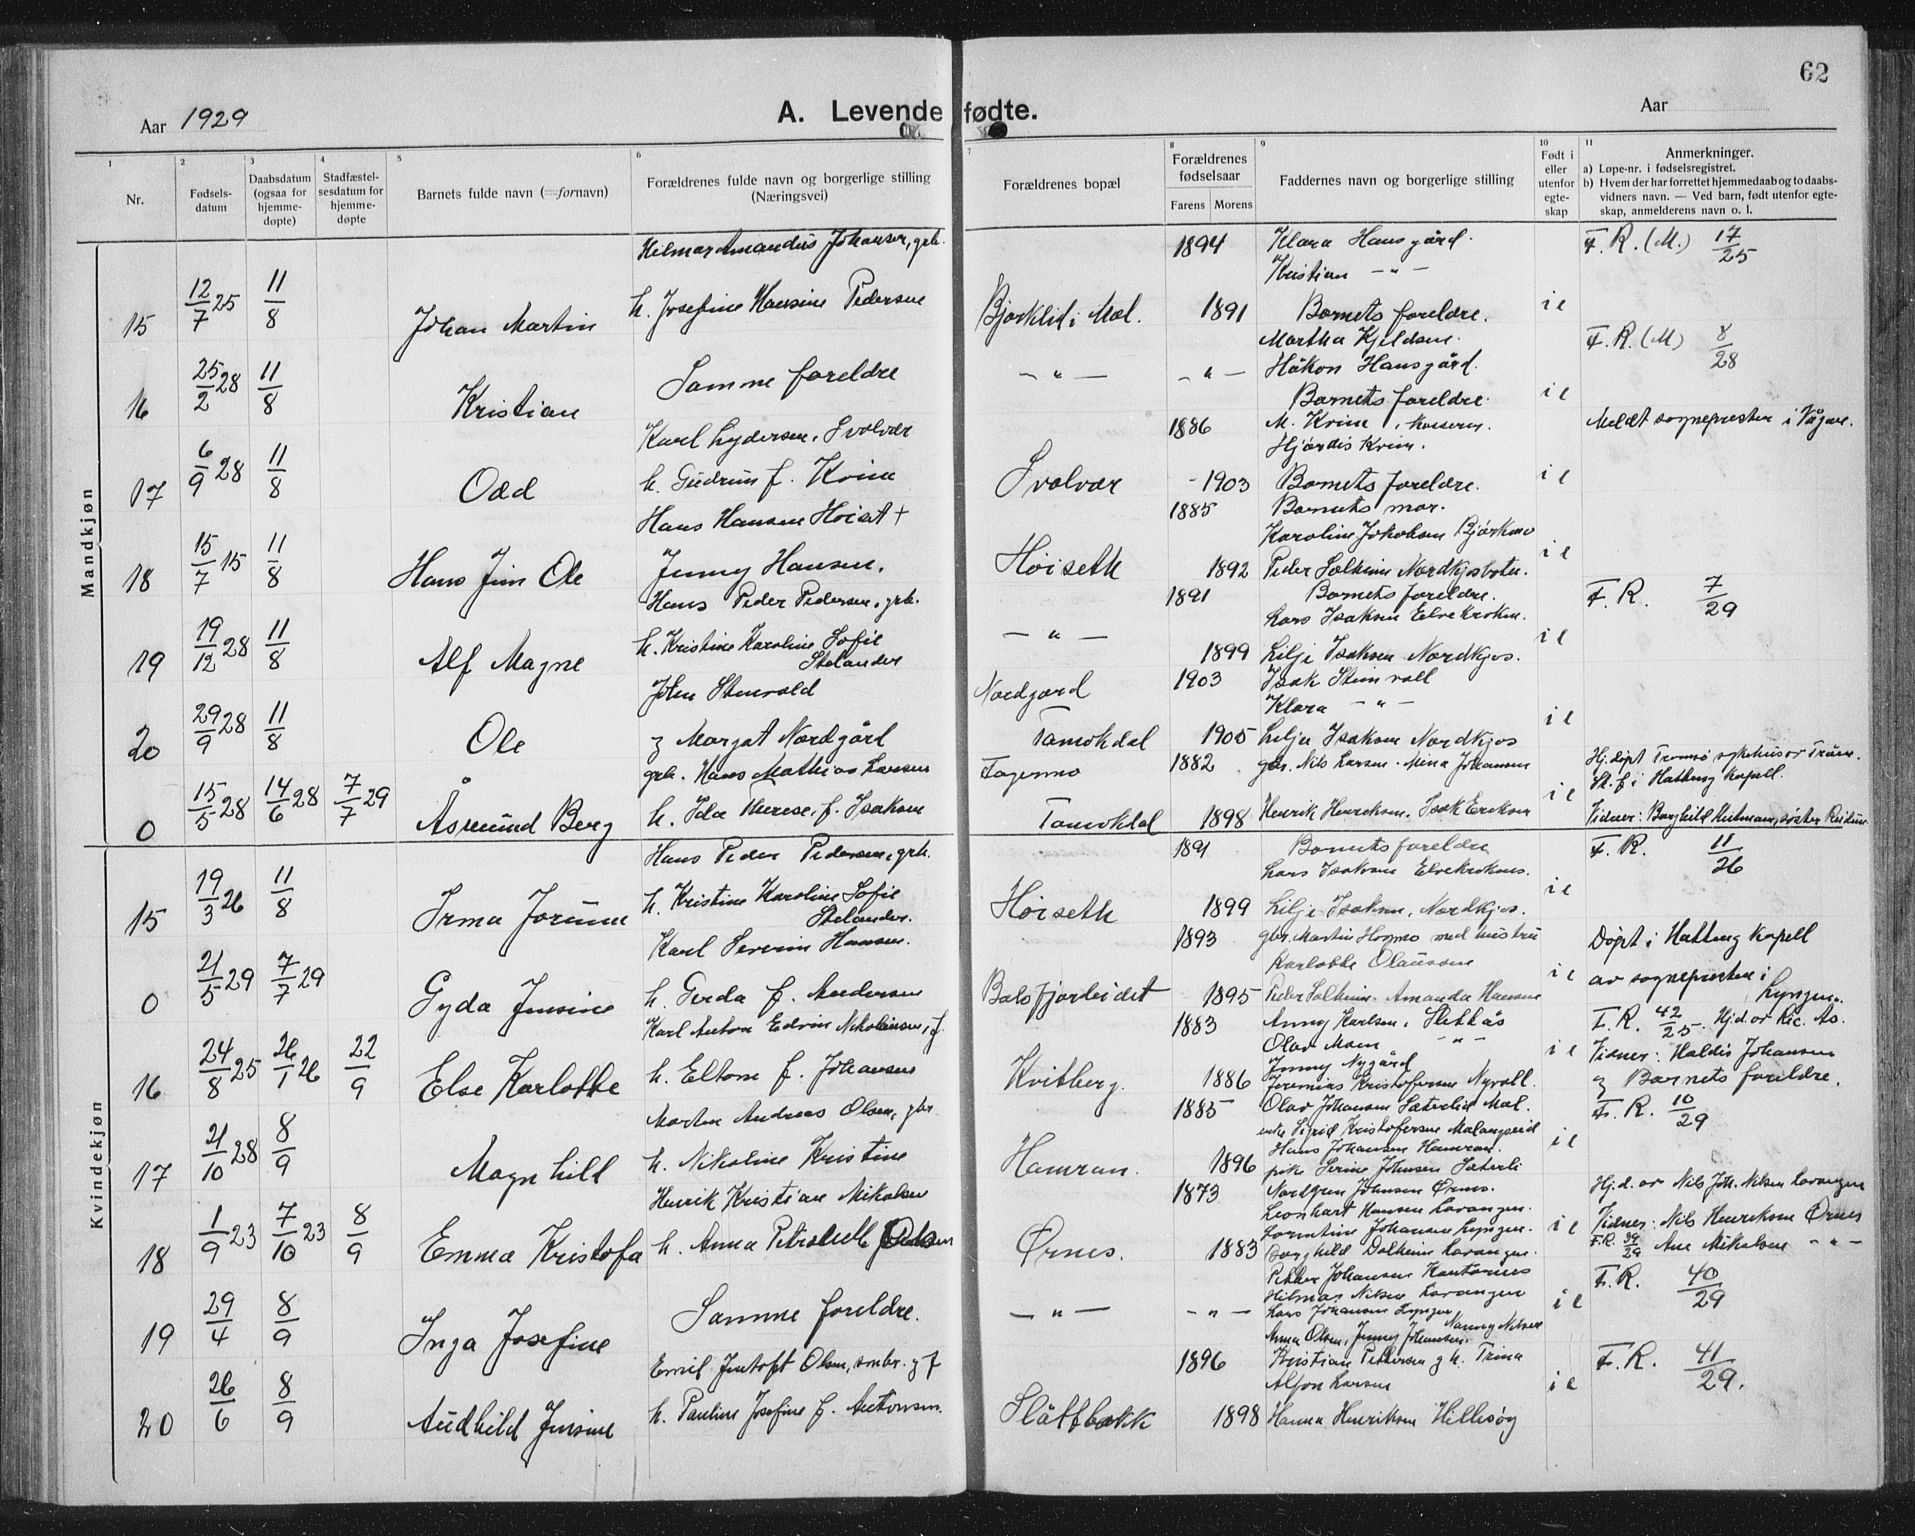 62
Aar 1929
A. Levende fødte.
Aar
1 2 3 4 5 6 7 8 9 10 11
Nr.
Fødsels-
datum
Daabsdatum
(ogsaa for
hjemme-
døpte)
Stadfæstel-
sesdatum for
hjemme-
døpte
Barnets fulde navn (=fornavn)
Forældrenes fulde navn og borgerlige stilling
(Næringsvei)
Forældrenes bopæl
Forældrenes
fødselsaar
Farens Morens
Faddernes navn og borgerlige stilling
Født i
eller
utenfor
egte-
skap
Anmerkninger.
a) Løpe-nr. i fødselsregistret.
b) Hvem der har forrettet hjemmedaab og to daabs-
vidners navn. — Ved barn, født utenfor egte-
skap, anmelderens navn o. l.
Mandkjøn
Hilmar Amandus Johansen, grb. 1894 Klara Hansgård. F. R. (M.) 17/25
Kristian — " —
15 12/7 25 11/8 Johan Martin h. Josefine Hansine Pedersen Bjørklid i Mal. 1891 Barnets foreldre. i e
Martha Kjeldsen. F. R. (M) 8/28
16 25/2 28 11/8 Kristian Samme foreldre — " — — " — Håkon Hansgård.
Barnets foreldre. i e
Karl Lydersen, Svolvær 1886 M. Kvine, Meldt sognepresten i Vågan.
Hjørdis Kvine.
17 6/9 28 11/8 Odd h. Gudrun f. Kvine Svolvær 1903 Barnets foreldre. i e
Hans Hansen Høiset + 1885 Barnets mor.
Karoline Jakobsen
18 15/7 15 11/8 Hans Jim Ole Jenny Hansen. Høiseth 1892 Peder Solheim Nordkjosbotn. i e
Hans Peder Pedersen, grb. 1891 Barnets foreldre. F. R. 7/29
Lars Isaksen Elvekroken.
19 19/12 28 11/8 Alf Magne h. Kristine Karoline Sofie Stelander — " — 1899 Lilje Isaksen Nordkjos. i e
John Stenvold Nordgård 1903 Isak Steinvoll
Klara — " —
20 29/9 28 11/8 Ole og Margat Nordgård Tamokdal 1905 Lilje Isaksen Nordkjos i e
grb. Hans Mathias Larsen Fagermo 1882 gbr. Nils Larsen. Mina Johansen Hj.døpt Tromsø sykehus
St. f. i Hatteng kapell.
0 15/5 28 14/6 28 7/7 29 Åsmund Berg h. Ida Therese, f. Isaksen Tamokdal 1898 Henrik Henriksen, Isak Eriksen i e Vidner: Borghild søster
Kvindekjøn
Hans Peder Pedersen, grb. 1891 Barnets foreldre F. R. 11/26
Lars Isaksen Elvekroken.
15 19/3 26 11/8 Irma Jorunn h. Kristine Karoline Sofie Stelander. Høiseth 1899 Lilje Isaksen, Nordkjos. i e
Karl Severin Hansen. 1893 gbr. Martin Hogmo med hustru Døpt i Hatteng kapell
Karlotte Olaussen
0 21/5 29 7/7 29 Gyda Jensine h. Gerda f. Andersen Balsfjorbeidet 1895 Peder Solheim. Amanda Hansen i e av sognepresten i Lyngen.
Karl Anton Edvin Nikolaisen, f. 1883 Anny Karlsen, Slettås F. R. 42/25. Hj.d. av
Olav Moen — " —
16 24/8 25 26/1 26 22/9 Else Karlotte h. Eltone f. Johansen Kvitberg. 1886 Jenny Nygård i e Vidner: Haldis Johansen
Jeremias Kristofersen Nyvoll. og Barnets foreldre.
Morten Andreas Olsen, gbr. 1885 Olav Johansen Sæterlid Mal. F. R. 10/29
Sigrid Kristofersen Malangseid
17 21/10 28 8/9 Magnhild h. Nikoline Kristine Hamran. 1896 Hans Johansen Hamran. i e
pike Serine Johnsen Sæterli
Henrik Kristian Mikalsen 1873 Nordgren Johnsen Ørnes. Hj.d. av Nils Joh. Nilsen Lavangen
Leonhart Hansen Lavangen.
18 1/9 23 7/10 23 8/9 Emma Kristofa h. Anna Petronelle Ørnes. 1883 Johansen Lyngen. i e Vidner: Nils Henriksen Ørnes
Borghild Dalheim Lavangen. F.R. 39/29 Ane Mikalsen — " —
Petter Johansen F. R. 40/29
Hilmar Nilsen Lavangen
19 29/4 8/9 Inga Josefine Samme foreldre. — " — — " — Lars Johansen Lyngen, Nanny Nilsen i e
Anna Olsen, Jenny Johansen.
Emil Jentoft Olsen, smbr. og f 1896 Kristian Pettersen og h. Trina F. R. 41/29.
Alfon Larsen
20 26/6 8/9 Audhild Jensine h. Pauline Josefine f. Antonsen. Slåttbakk 1898 Hanna Henriksen Hillesøy i e